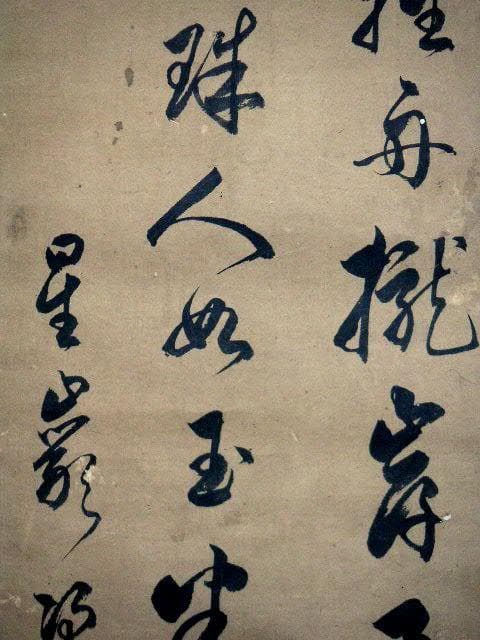 舟攏岸
珠人如玉
星巖